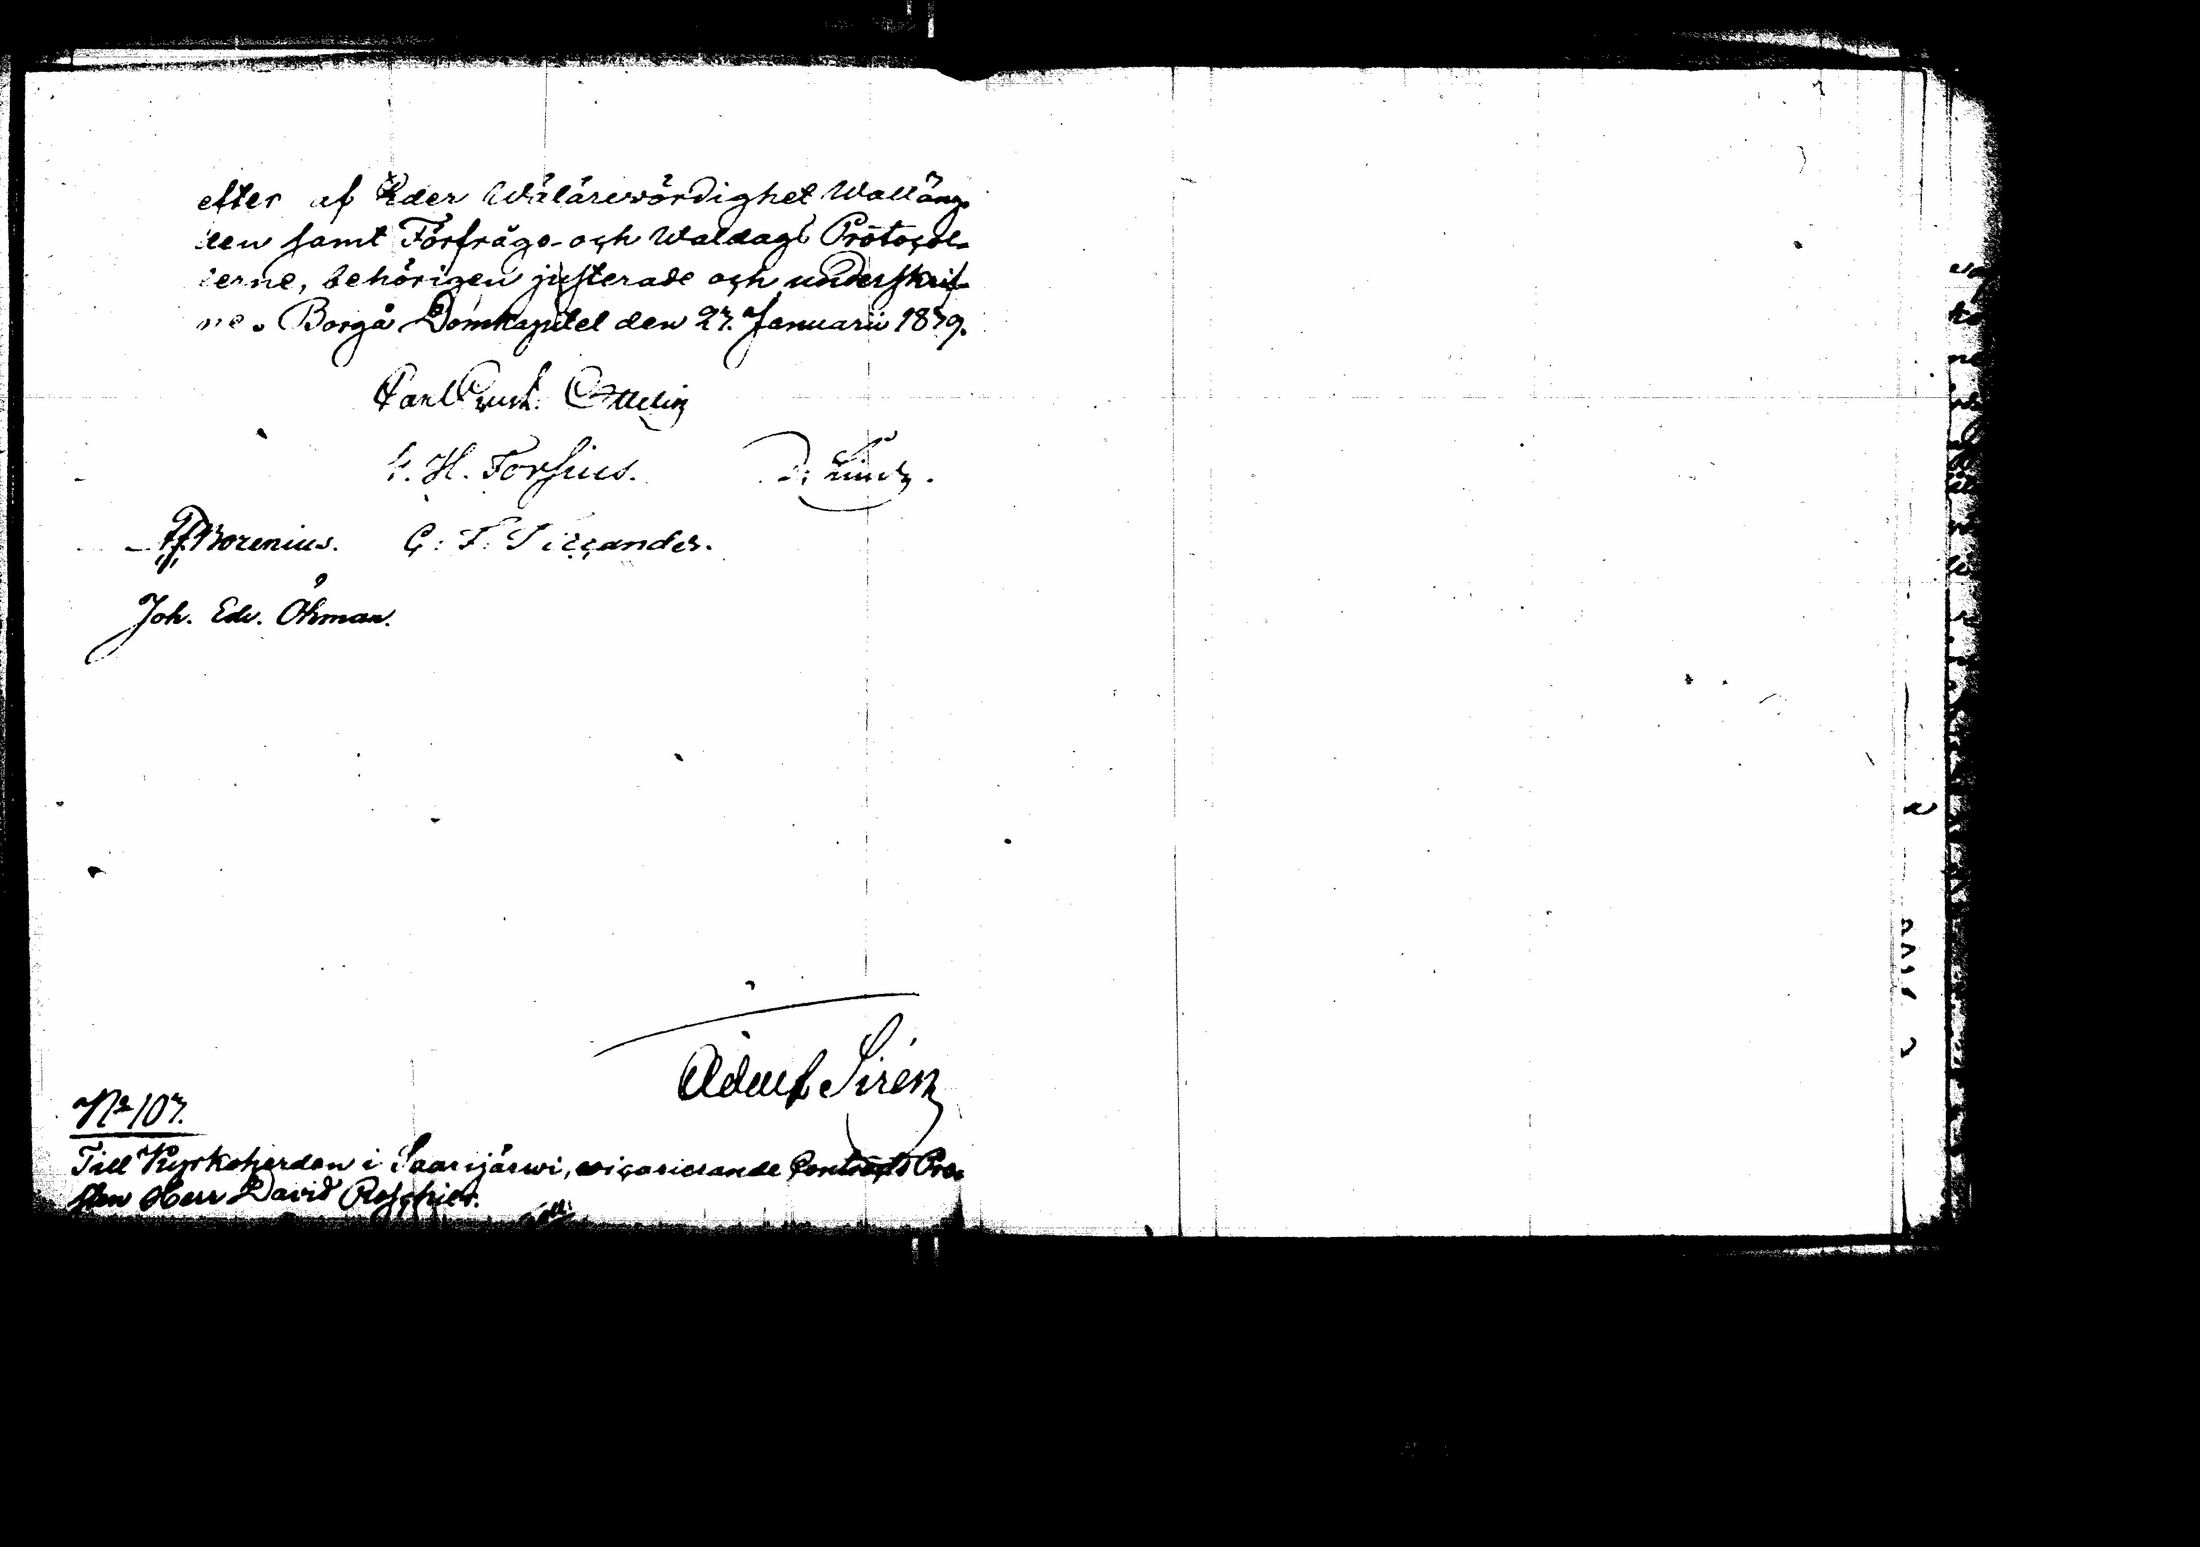 efter af Eder Wälärewördighet Walläng-
den samt Förfrågs- och Waldags Protocol-
lerne, behörigen justerade och underskrif-
ne. Borgå Domkapitel den 27. Januarii 1839.
Carl Ottelin
G. H. Forsius.
Borenius. C: F: Alcander.
Joh. Edv. Öhman.
Adolf Sirén
No 107.
Till Kyrkoherden i Saarijärwi, vicarierande Contracts Pro-
sten Herr David Roschier.